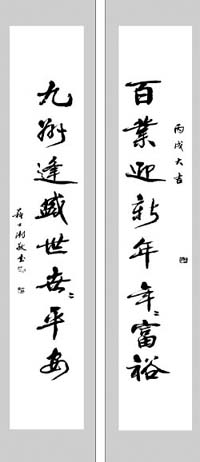 丙戌大吉
百業迎新年年〻富裕
九州逢盛世世〻平安